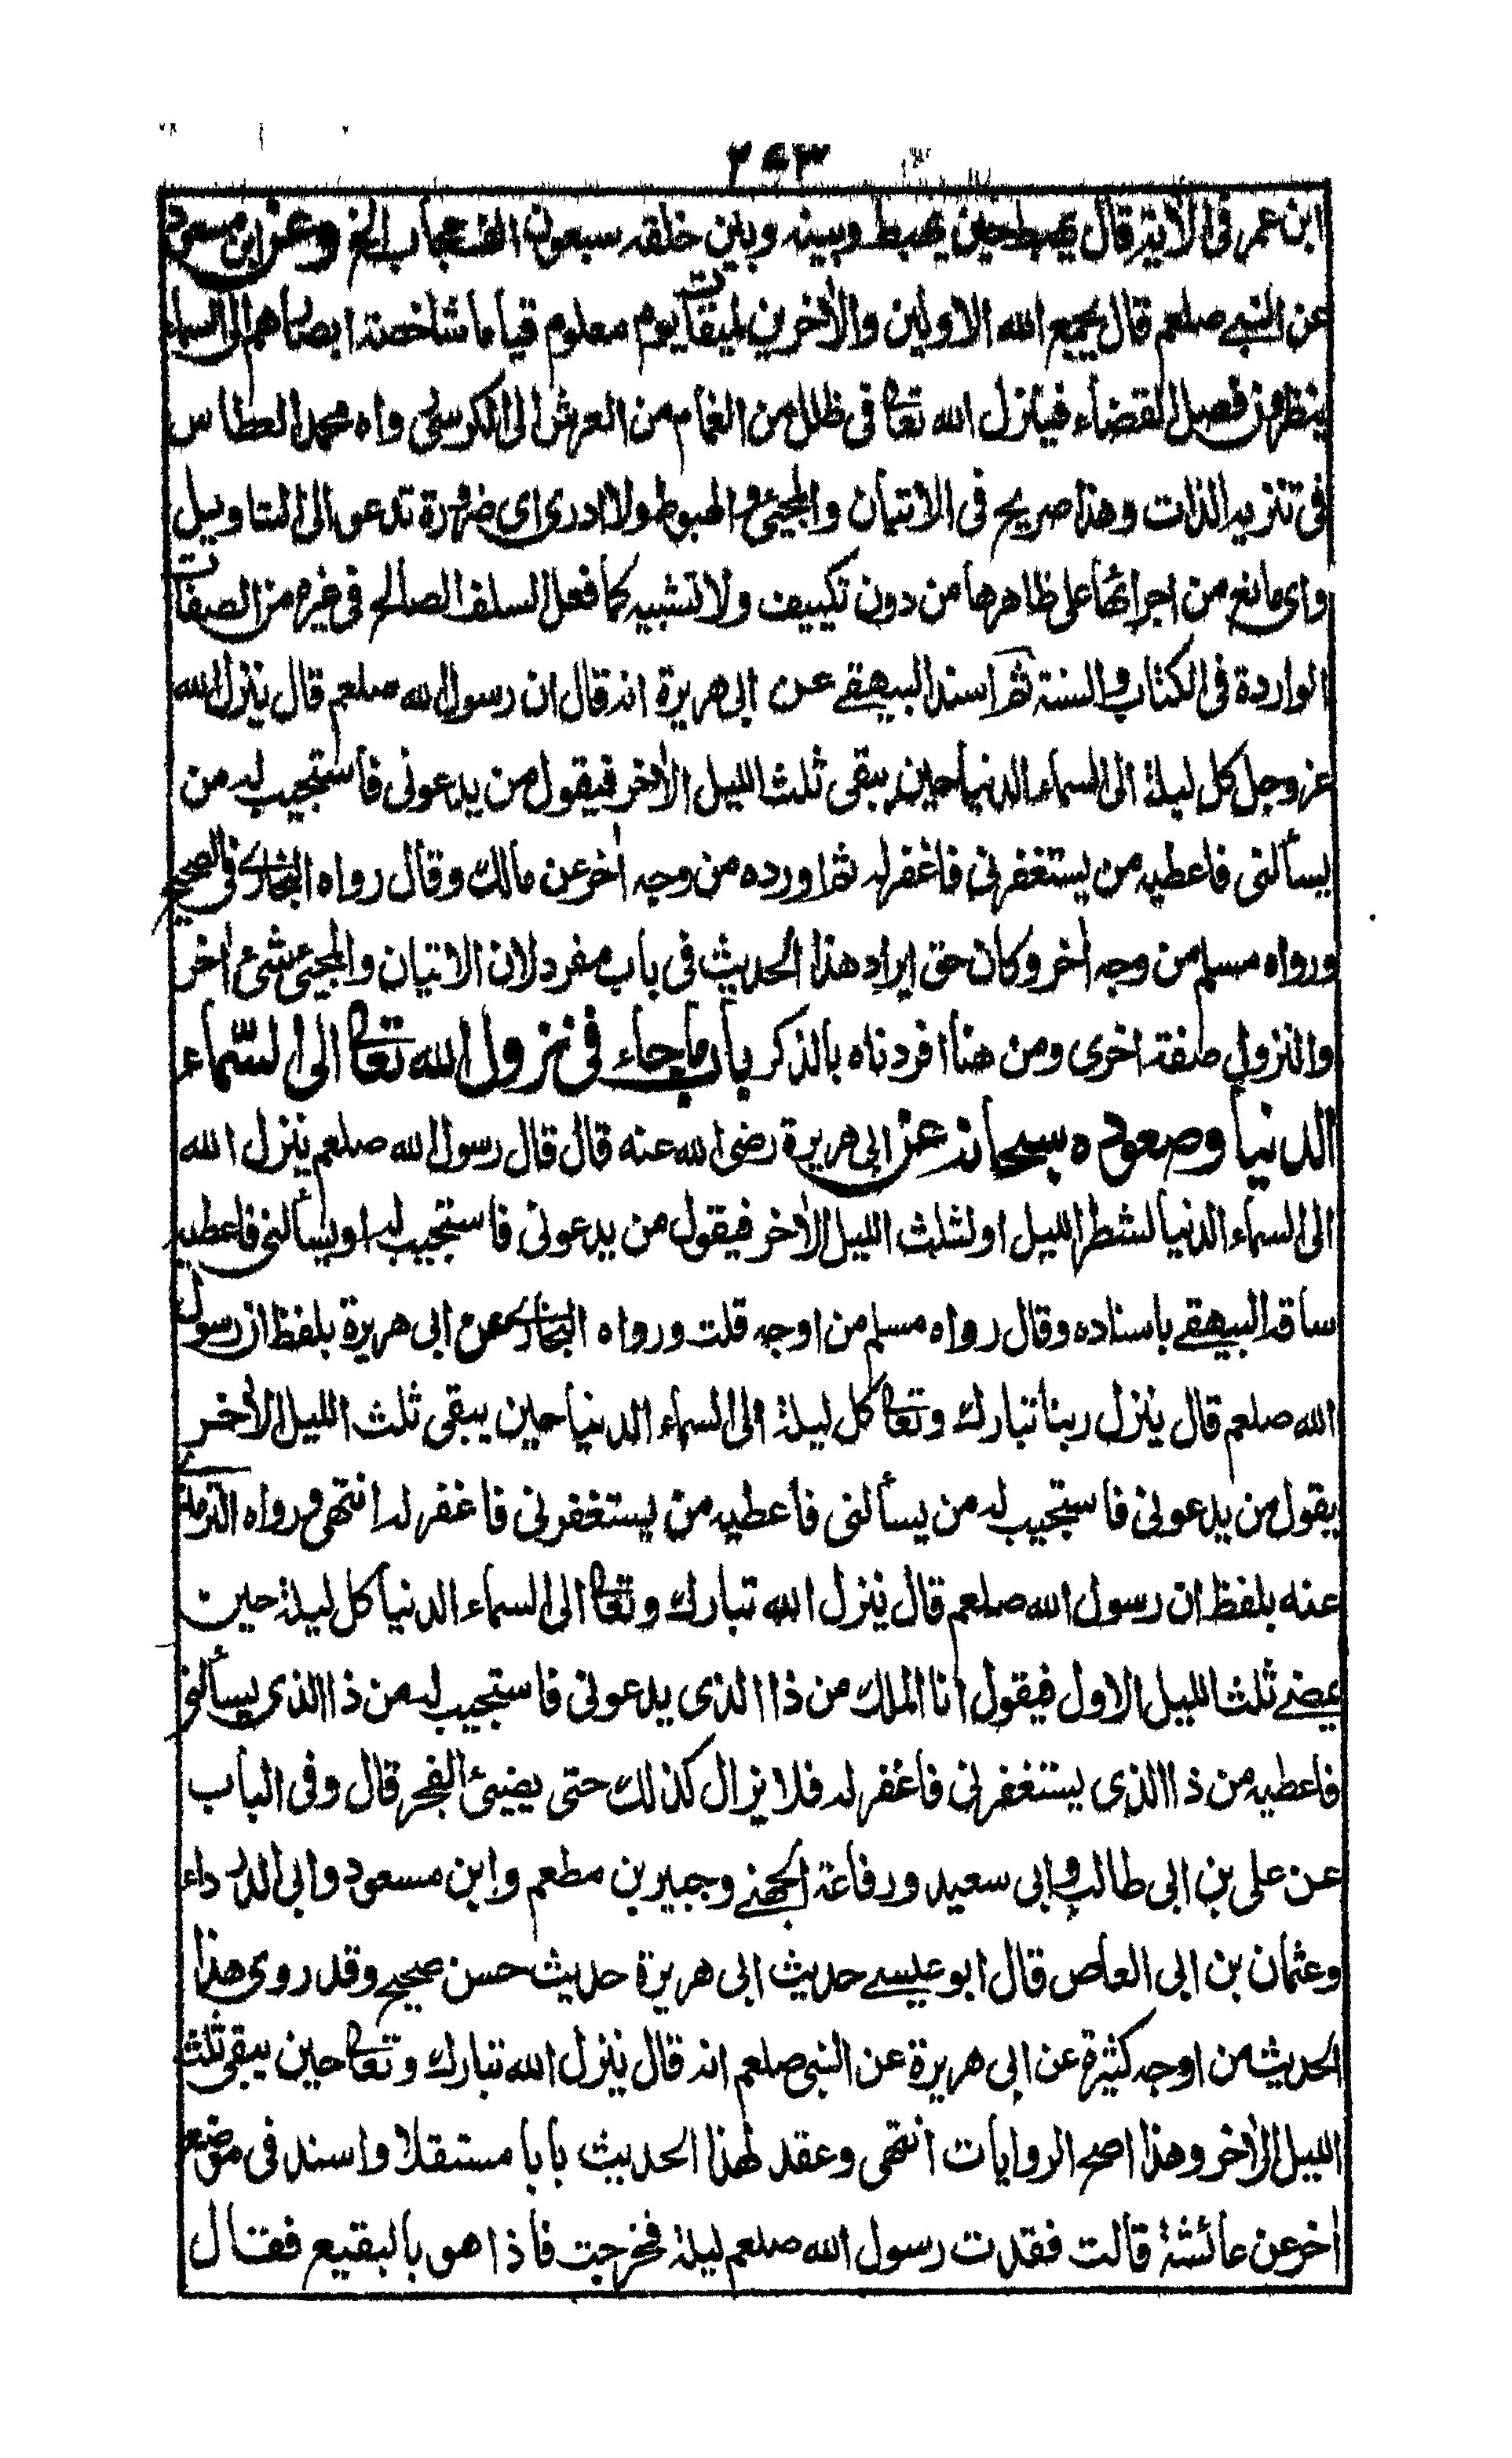 ٢٩٣
ابن عمر فى الاٰية قال يهبط حين يهبط وبينه وبين خلقه سبعون الف حجاب الخ وعن ابن مسعود
عن النبي صلعم قال يجمع الله الاولين والاٰخرين لميقات يوم معلوم قياما شاخصة ابصارهم الى السماء
ينظرون فصل القضاء فينزل الله تعالى فى ظلل من الغمام من العرش الى الكرسى رواه محمد العطاس
فى تنزيه الذات وهذا صريح فى الاتيان والمجيئ والهبوط ولا ادرى اى ضرورة تدعو الى التاويل
واى مانع من اجرائها على ظاهرها من دون تكييف ولا تشبيه كما فعل السلف الصالح فى غيره من الصفات
الواردة فى الكتاب والسنة ثم اسند البيهقے عن ابى هريرة انه قال ان رسول الله صلعم قال ينزل الله
عز وجل كل ليلة الى السماء الدنيا حين يبقى ثلث الليل الاٰخر فيقول من يدعونى فأستجيب له من
يسألنى فاعطيه من يستغفرنى فاغفر له ثم اورده من وجه اٰخر عن مالك وقال رواه البخارى فى الصحيح
ورواه مسلم من وجه اٰخر وكان حق ايراد هذا الحديث فى باب مفرد لان الاتيان والمجيئ شئ اٰخر
والنزول صفة اخرى ومن هنا افردناه بالذكر باب ما جاء فى نزول الله تعالى الى السّماء
الدنيا وصعوده سبحانه عن ابى هريرة رضى الله عنه قال قال رسول الله صلعم ينزل الله
الى السماء الدنيا لشطر الليل او لثلث الليل الاٰخر فيقول من يدعونى فاستجيب له او يسألنى فاعطيه
ساقه البيهقے باسناده وقال رواه مسلم من اوجه قلت ورواه البخارى عن ابى هريرة بلفظ ان رسول
الله صلعم قال ينزل ربنا تبارك وتعالى كل ليلة الى السماء الدنيا حين يبقى ثلث الليل الاٰخر
يقول من يدعونى فاستجيب له من يسألنى فأعطيه من يستغفرنى فاغفر له انتهى ورواه الترمذے
عنه بلفظ ان رسول الله صلعم قال ينزل الله تبارك وتعالى الى السماء الدنيا كل ليلة حين
يمضے ثلث الليل الاول فيقول انا الملك من ذا الذى يدعونى فاستجيب له من ذا الذى يسألنى
فاعطيه من ذا الذى يستغفرنى فاغفر له فلا يزال كذلك حتى يضيئ الفجر قال وفى الباب
عن على بن ابى طالب وابى سعيد ورفاعة الجهنے وجبير بن مطعم وابن مسعود وابى الدرداء
وعثمان بن ابى العاص قال ابو عيسے حديث ابى هريرة حديث حسن صحيح وقد روى هذا
الحديث من اوجه كثيرة عن ابى هريرة عن النبى صلعم انه قال ينزل الله تبارك وتعالى حين يبقى ثلث
الليل الاٰخر وهذا اصح الروايات انتهى وعقد لهذا الحديث بابا مستقلا واسند فى موضع
اٰخر عن عائشة قالت فقدت رسول الله صلعم ليلة فخرجت فاذا هو بالبقيع فقال